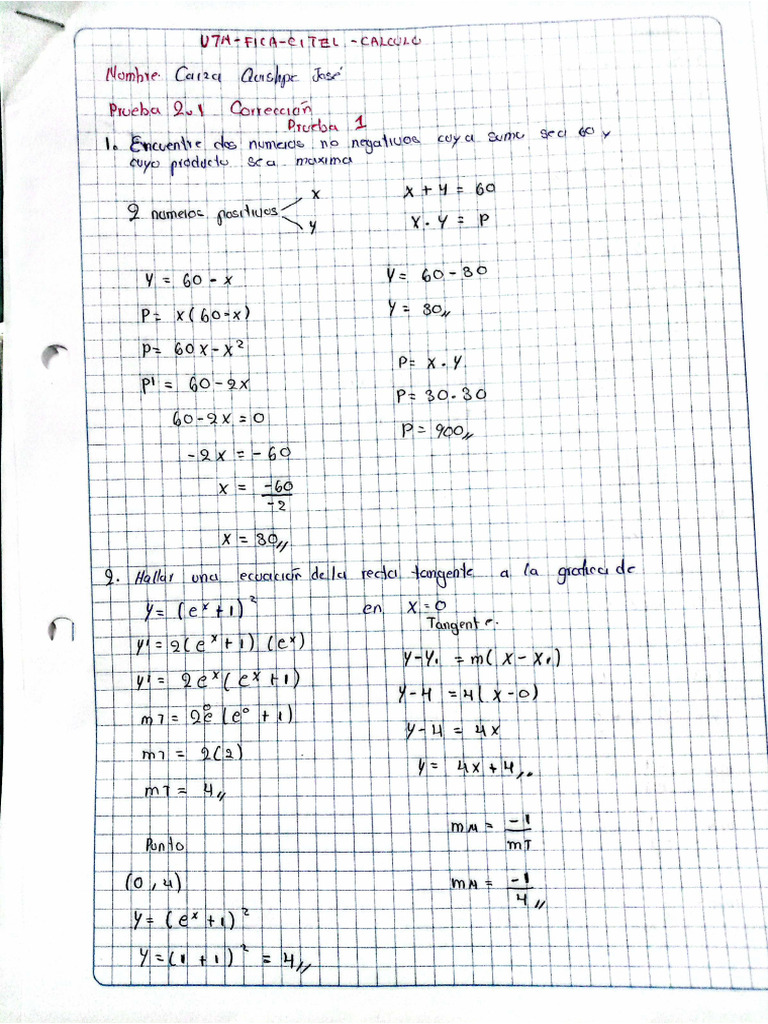 UTN-FICA-CITEL-CALCULO
Nombre: Caiza Quishpe José
Prueba 2.1 Corrección
Prueba 1
1. Encuentre dos numeros no negativos cuya suma sea 60 y
cuyo producto sea maxima
2 numeros positivos x
y
x + y = 60
x . y = P
y = 60 - x
P = x(60-x)
P = 60x - x²
P' = 60 - 2x
60 - 2x = 0
-2x = -60
x = -60/-2
x = 30//
y = 60 - 30
y = 30//
P = x . y
P = 30 . 30
P = 900//
2. Hallar una ecuación de la recta tangente a la grafica de
y = (eˣ + 1)² en x = 0
y' = 2(eˣ + 1) (eˣ)
y' = 2eˣ(eˣ + 1)
mT = 2e⁰(e⁰ + 1)
mT = 2(2)
mT = 4//
Punto
(0, 4)
y = (eˣ + 1)²
y = (1 + 1)² = 4//
Tangente.
y - y₁ = m(x - x₁)
y - 4 = 4(x - 0)
y - 4 = 4x
y = 4x + 4//.
mN = -1/mT
mN = -1/4//